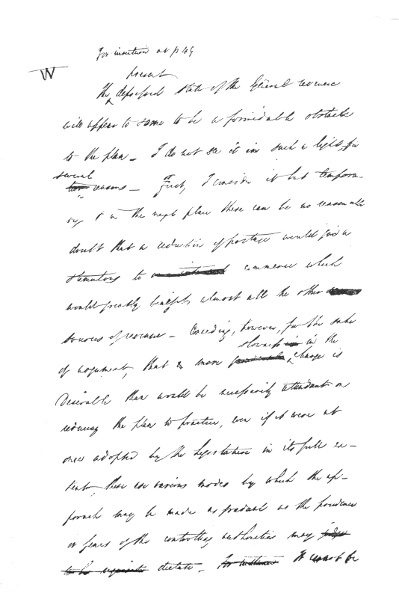 For insertion at p 49
W
present
The depressed state of the General revenue
will appear to some to be a formidable obstacle
to the plan – I do not see it in such a light for
several
reasons – first, I consider it but tempor-
ary & in the next place there can be no reasonable
doubt that a reduction of postage would give a
stimulous to commerce which
would greatly benefit almost all the other
sources of revenue – Conceding, however, for the sake
slowness in the
of argument, that a more change is
desirable than would be necessarily attendant on
reducing the plan to practice, even if it were at
once adopted by the legislature in its full ex-
tent, there are various modes by which the ap-
proach may be made as gradual as the prudence
or fears of the controlling authorities may
to be requisite dictate. It cannot be